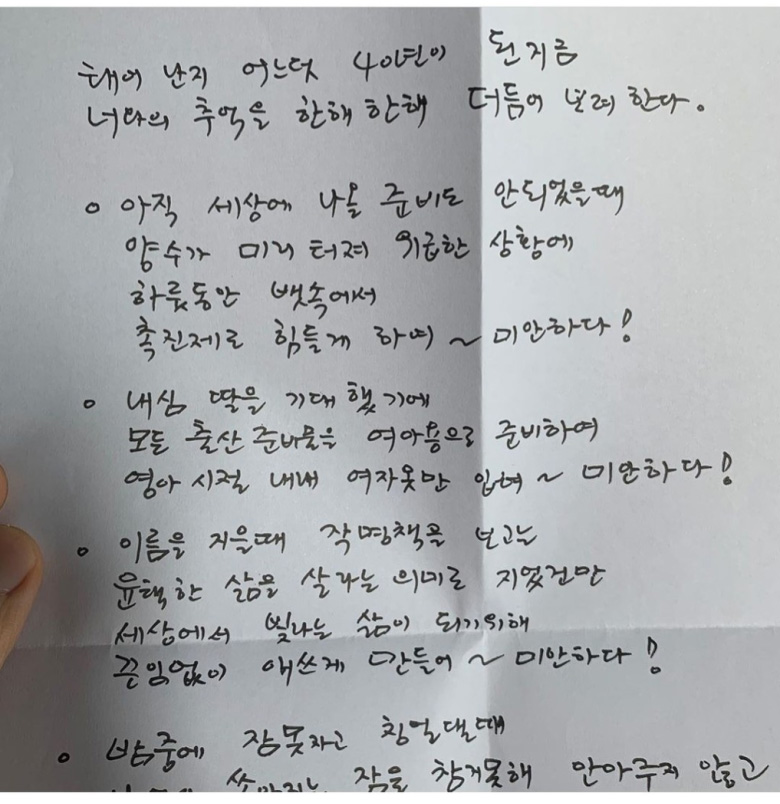 태어 난지 어느덧 40년이 된지금
너와의 추억을 한해 한해 더듬어 보려 한다.
○ 아직 세상에 나올 준비도 안되었을때
양수가 미리 터져 위급한 상황에
하룻동안 뱃속에서
촉진제로 힘들게 하여 ~ 미안하다!
○ 내심 딸을 기대 했기에
모든 출산 준비물을 여아용으로 준비하여
영아 시절 내내 여자옷만 입혀 ~ 미안하다!
○ 이름을 지을때 작명책을 보고는
윤택한 삶을 살라는 의미로 지었건만
세상에서 빛나는 삶이 되기위해
끈임없이 애쓰게 만들어 ~ 미안하다!
○ 밤중에 잠못자고 칭얼댈때
쏟아지는 잠을 참지못해 안아주지 않고